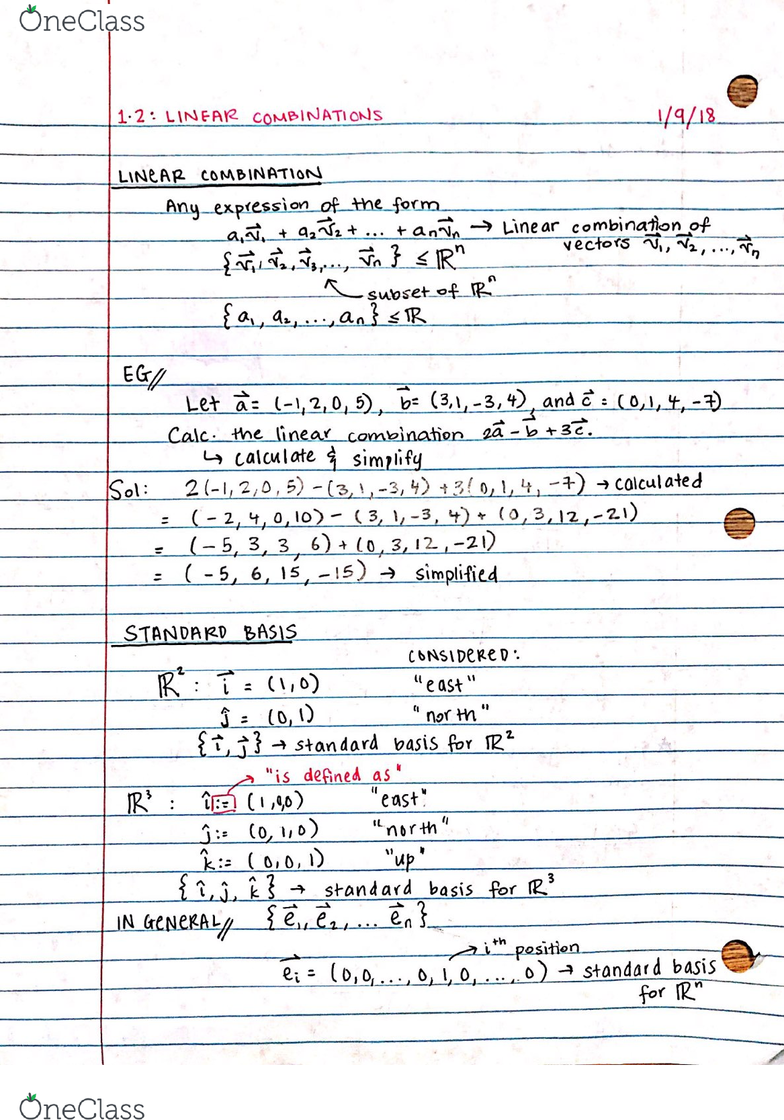 OneClass
1.2: LINEAR COMBINATIONS 1/9/18
LINEAR COMBINATION
Any expression of the form
a₁v⃗₁ + a₂v⃗₂ + ... + aₙv⃗ₙ → Linear combination of
vectors v⃗₁, v⃗₂, ..., v⃗ₙ
{v⃗₁, v⃗₂, v⃗₃, ..., v⃗ₙ} ≤ ℝⁿ
subset of ℝⁿ
{a₁, a₂, ..., aₙ} ≤ ℝ
EG//
Let a⃗ = (-1, 2, 0, 5), b⃗ = (3, 1, -3, 4), and c⃗ = (0, 1, 4, -7)
Calc. the linear combination 2a⃗ - b⃗ + 3c⃗.
↳ calculate & simplify
Sol: 2(-1, 2, 0, 5) - (3, 1, -3, 4) + 3(0, 1, 4, -7) → calculated
= (-2, 4, 0, 10) - (3, 1, -3, 4) + (0, 3, 12, -21)
= (-5, 3, 3, 6) + (0, 3, 12, -21)
= (-5, 6, 15, -15) → simplified
STANDARD BASIS
CONSIDERED:
ℝ² : i⃗ = (1, 0) "east"
ĵ = (0, 1) "north"
{i⃗, j⃗} → standard basis for ℝ²
"is defined as"
ℝ³ : î := (1, 0, 0) "east"
ĵ := (0, 1, 0) "north"
k̂ := (0, 0, 1) "up"
{î, ĵ, k̂} → standard basis for ℝ³
IN GENERAL// {e⃗₁, e⃗₂, ... e⃗ₙ}
iᵗʰ position
e⃗ᵢ = (0, 0, ..., 0, 1, 0, ..., 0) → standard basis
for ℝⁿ
OneClass